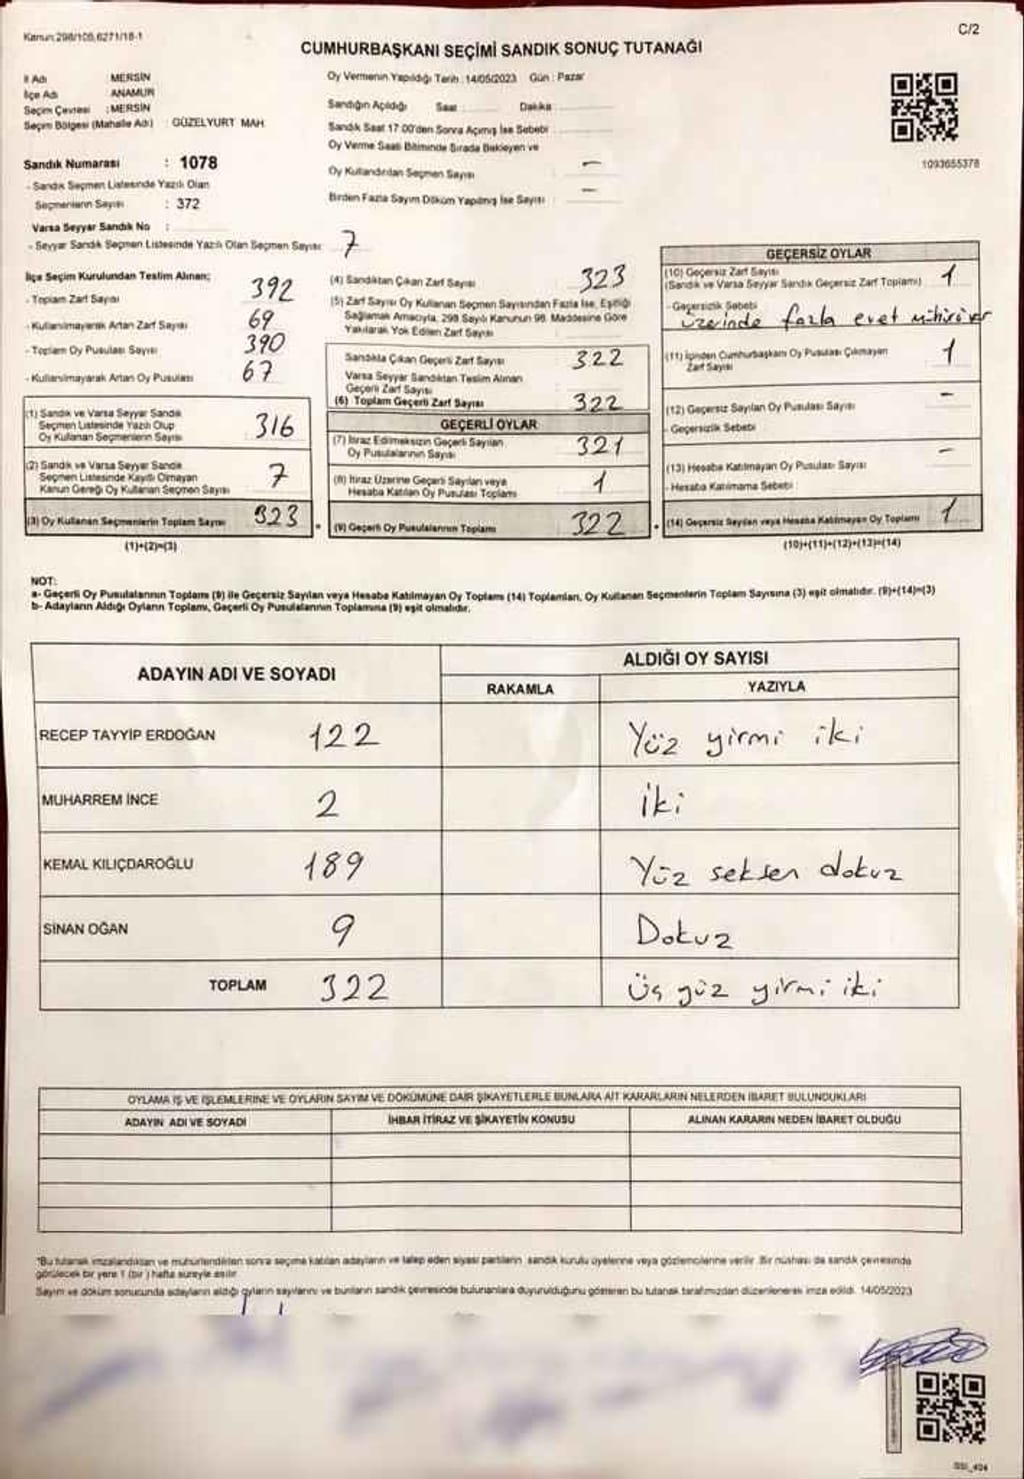 Kanun:298/105,6271/18-1
C/2
CUMHURBAŞKANI SEÇİMİ SANDIK SONUÇ TUTANAĞI
İl Adı MERSİN
İlçe Adı ANAMUR
Seçim Çevresi : MERSİN
Seçim Bölgesi (Mahalle Adı) : GÜZELYURT MAH.
Sandık Numarası : 1078
- Sandık Seçmen Listesinde Yazılı Olan
Seçmenlerin Sayısı : 372
Varsa Seyyar Sandık No :
- Seyyar Sandık Seçmen Listesinde Yazılı Olan Seçmen Sayısı: 7
Oy Vermenin Yapıldığı Tarih :14/05/2023 Gün : Pazar
Sandığın Açıldığı Saat Dakika
Sandık Saat 17.00'den Sonra Açılmış İse Sebebi
Oy Verme Saati Bitiminde Sırada Bekleyen ve
Oy Kullandırılan Seçmen Sayısı : —
Birden Fazla Sayım Döküm Yapılmış İse Sayısı : —
1093655378
İlçe Seçim Kurulundan Teslim Alınan;
- Toplam Zarf Sayısı 392
- Kullanılmayarak Artan Zarf Sayısı 69
- Toplam Oy Pusulası Sayısı 390
- Kullanılmayarak Artan Oy Pusulası 67
(1) Sandık ve Varsa Seyyar Sandık
Seçmen Listesinde Yazılı Olup
Oy Kullanan Seçmenlerin Sayısı 316
(2) Sandık ve Varsa Seyyar Sandık
Seçmen Listesinde Kayıtlı Olmayan
Kanun Gereği Oy Kullanan Seçmen Sayısı 7
(3) Oy Kullanan Seçmenlerin Toplam Sayısı 323
(1)+(2)=(3)
(4) Sandıktan Çıkan Zarf Sayısı 323
(5) Zarf Sayısı Oy Kullanan Seçmen Sayısından Fazla İse, Eşitliği
Sağlamak Amacıyla, 298 Sayılı Kanunun 98. Maddesine Göre
Yakılarak Yok Edilen Zarf Sayısı
Sandıkta Çıkan Geçerli Zarf Sayısı 322
Varsa Seyyar Sandıktan Teslim Alınan
Geçerli Zarf Sayısı
(6) Toplam Geçerli Zarf Sayısı 322
GEÇERLİ OYLAR
(7) İtiraz Edilmeksizin Geçerli Sayılan
Oy Pusulalarının Sayısı 321
(8) İtiraz Üzerine Geçerli Sayılan veya
Hesaba Katılan Oy Pusulası Toplamı 1
(9) Geçerli Oy Pusulalarının Toplamı 322
GEÇERSİZ OYLAR
(10) Geçersiz Zarf Sayısı
(Sandık ve Varsa Seyyar Sandık Geçersiz Zarf Toplamı) 1
- Geçersizlik Sebebi
üzerinde fazla evet
(11) İçinden Cumhurbaşkanı Oy Pusulası Çıkmayan
Zarf Sayısı 1
(12) Geçersiz Sayılan Oy Pusulası Sayısı —
- Geçersizlik Sebebi
(13) Hesaba Katılmayan Oy Pusulası Sayısı —
- Hesaba Katılmama Sebebi :
(14) Geçersiz Sayılan veya Hesaba Katılmayan Oy Toplamı 1
(10)+(11)+(12)+(13)=(14)
NOT:
a- Geçerli Oy Pusulalarının Toplamı (9) ile Geçersiz Sayılan veya Hesaba Katılmayan Oy Toplamı (14) Toplamları, Oy Kullanan Seçmenlerin Toplam Sayısına (3) eşit olmalıdır. (9)+(14)=(3)
b- Adayların Aldığı Oyların Toplamı, Geçerli Oy Pusulalarının Toplamına (9) eşit olmalıdır.
ADAYIN ADI VE SOYADI ALDIĞI OY SAYISI
RAKAMLA YAZIYLA
RECEP TAYYİP ERDOĞAN 122 Yüz yirmi iki
MUHARREM İNCE 2 iki
KEMAL KILIÇDAROĞLU 189 Yüz seksen dokuz
SİNAN OĞAN 9 Dokuz
TOPLAM 322 Üç yüz yirmi iki
OYLAMA İŞ VE İŞLEMLERİNE VE OYLARIN SAYIM VE DÖKÜMÜNE DAİR ŞİKAYETLERLE BUNLARA AİT KARARLARIN NELERDEN İBARET BULUNDUKLARI
ADAYIN ADI VE SOYADI İHBAR İTİRAZ VE ŞİKAYETİN KONUSU ALINAN KARARIN NEDEN İBARET OLDUĞU
*Bu tutanak imzalandıktan ve mühürlendikten sonra seçime katılan adayların ve talep eden siyasi partilerin sandık kurulu üyelerine veya gözlemcilerine verilir. Bir nüshası da sandık çevresinde
görülecek bir yere 1 (bir) hafta süreyle asılır.
Sayım ve döküm sonucunda adayların aldığı oyların sayılarını ve bunların sandık çevresinde bulunanlara duyurulduğunu gösteren bu tutanak tarafımızdan düzenlenerek imza edildi. 14/05/2023